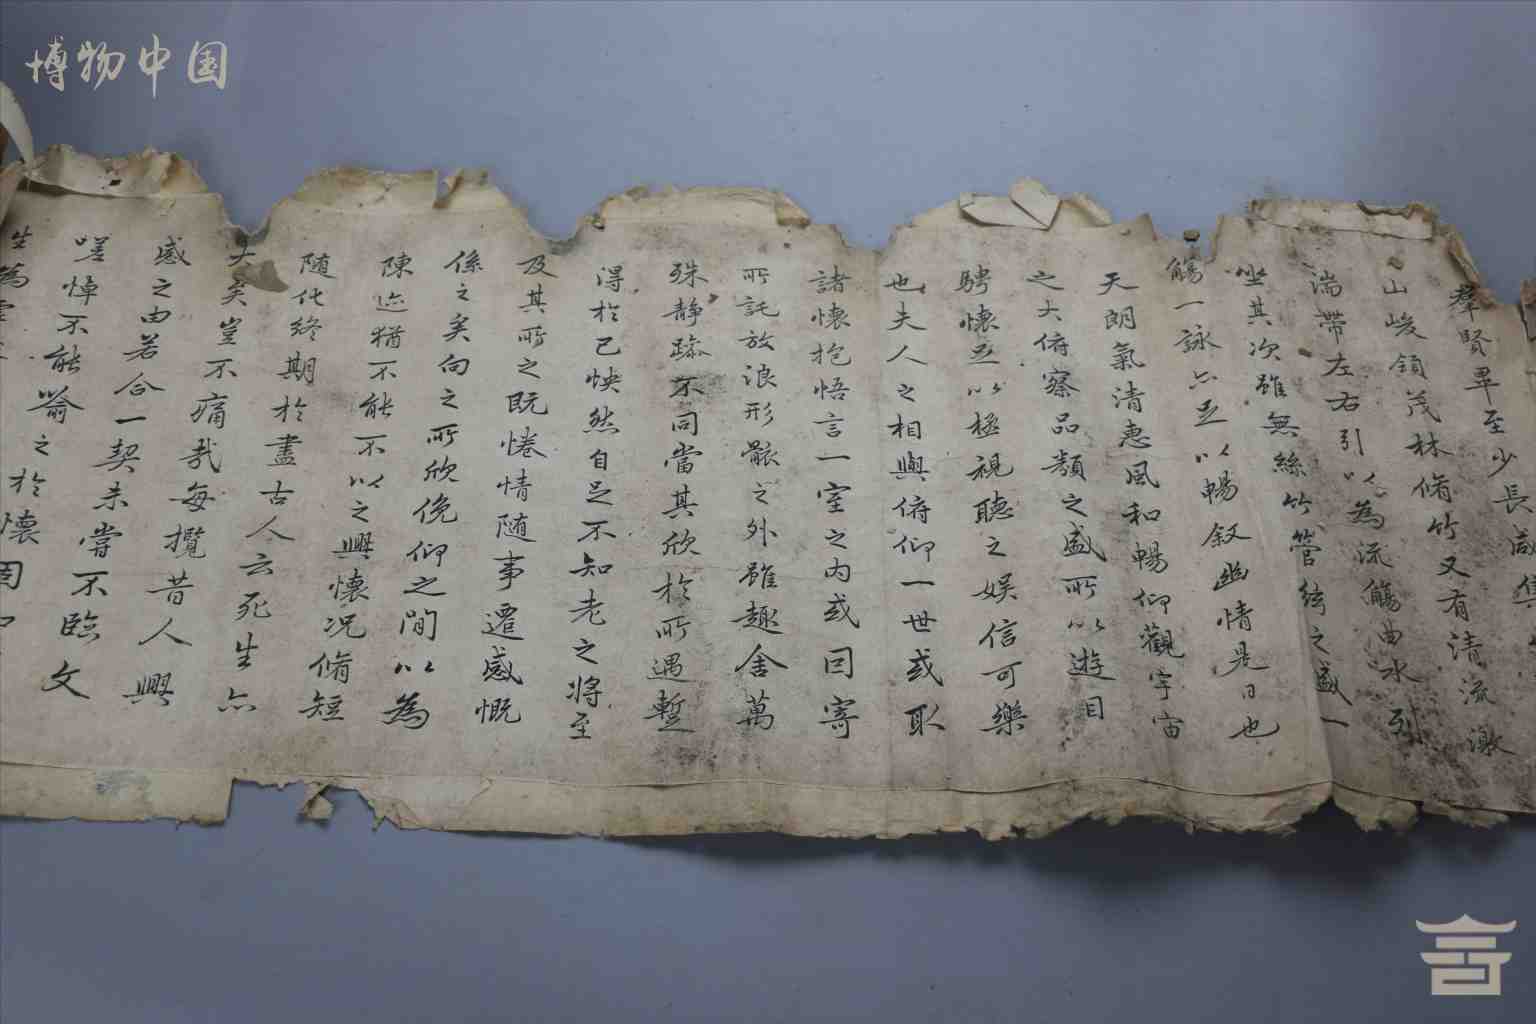 博物中国
群賢畢至少長咸集
山峻領茂林脩竹又有清流激
湍帶左右引以為流觴曲水列
坐其次雖無絲竹管絃之盛一
觴一詠亦足以暢叙幽情是日也
天朗氣清惠風和暢仰觀宇宙
之大俯察品類之盛所以遊目
騁懷足以極視聽之娱信可樂
也夫人之相與俯仰一世或取
諸懷抱悟言一室之内或因寄
所託放浪形骸之外雖趣舍萬
殊静躁不同當其欣於所遇暫
得於己怏然自足不知老之将至
及其所之既惓情随事遷感慨
係之矣向之所欣俛仰之間以為
陳迹猶不能不以之興懷况脩短
随化終期於盡古人云死生亦
大矣豈不痛哉每攬昔人興
感之由若合一契未嘗不臨文
嗟悼不能喻之於懷固
生為虚